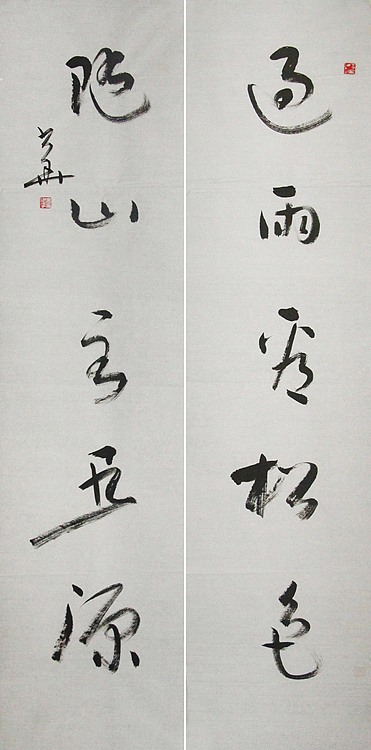 過雨看松色
隨山到水源